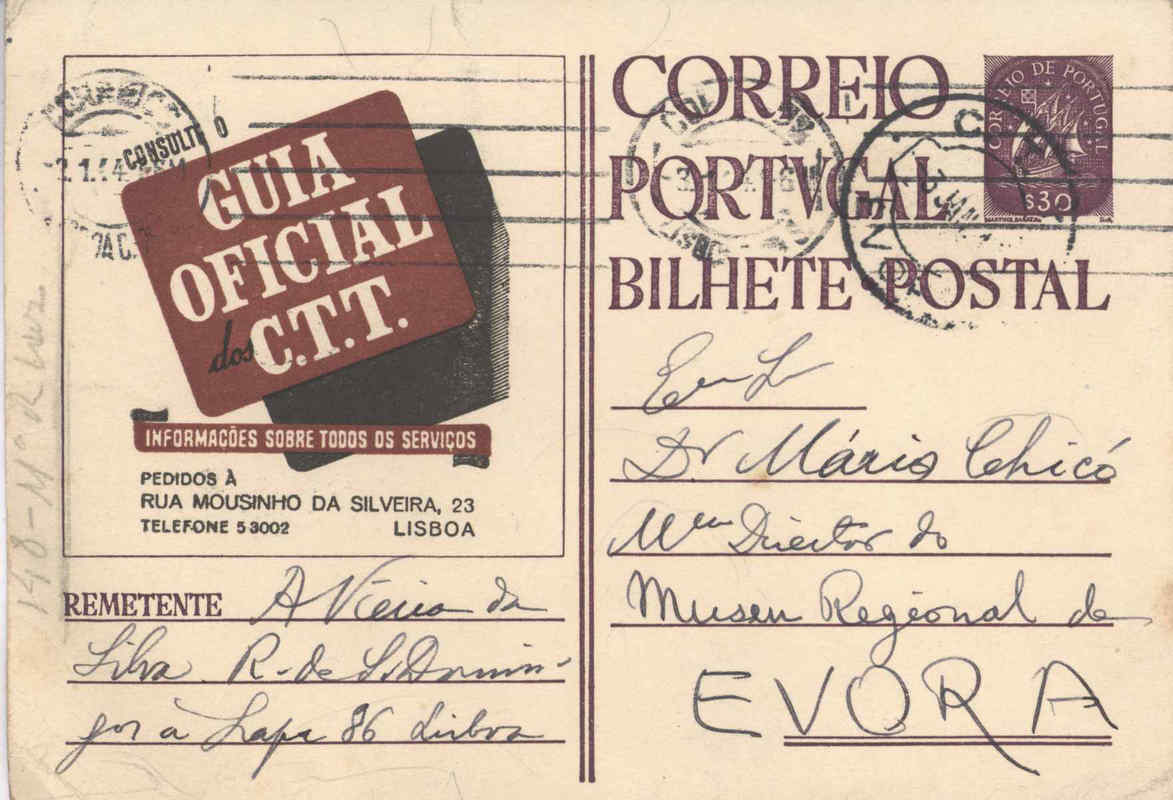 CONSULTE O
GUIA
OFICIAL
dos C.T.T.
INFORMAÇÕES SOBRE TODOS OS SERVIÇOS
PEDIDOS À
RUA MOUSINHO DA SILVEIRA, 23
TELEFONE 53002 LISBOA
REMETENTE A Vieira da
Silva. R. de S. Domin-
gos à Lapa 86 Lisboa
CORREIO
PORTVGAL
BILHETE POSTAL
CORREIO DE PORTUGAL
$30
Dr Mário Chicó
Director do
Museu Regional de
EVORA
148 - Mº